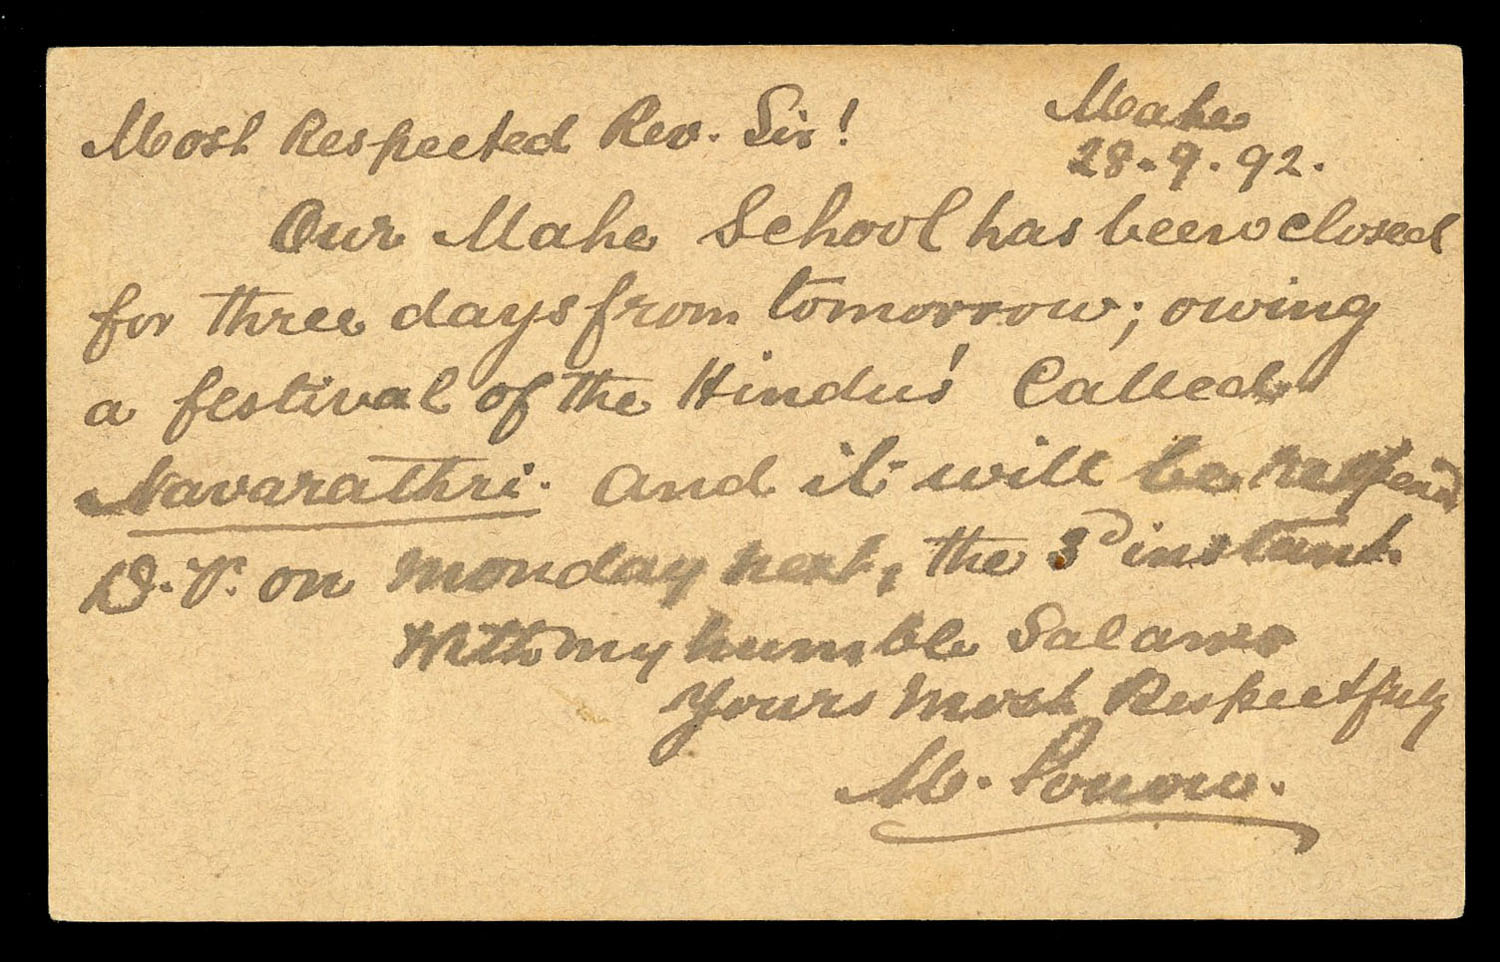 Mahe
28.9.92.
Most Respected Rev. Sir!
Our Mahe School has been closed
for three days from tomorrow; owing
a festival of the Hindus' Called
Navarathri. And it will be
D.V. on Monday next, the 3d instant.
With my humble Salams
Yours Most Respectfuly
M.